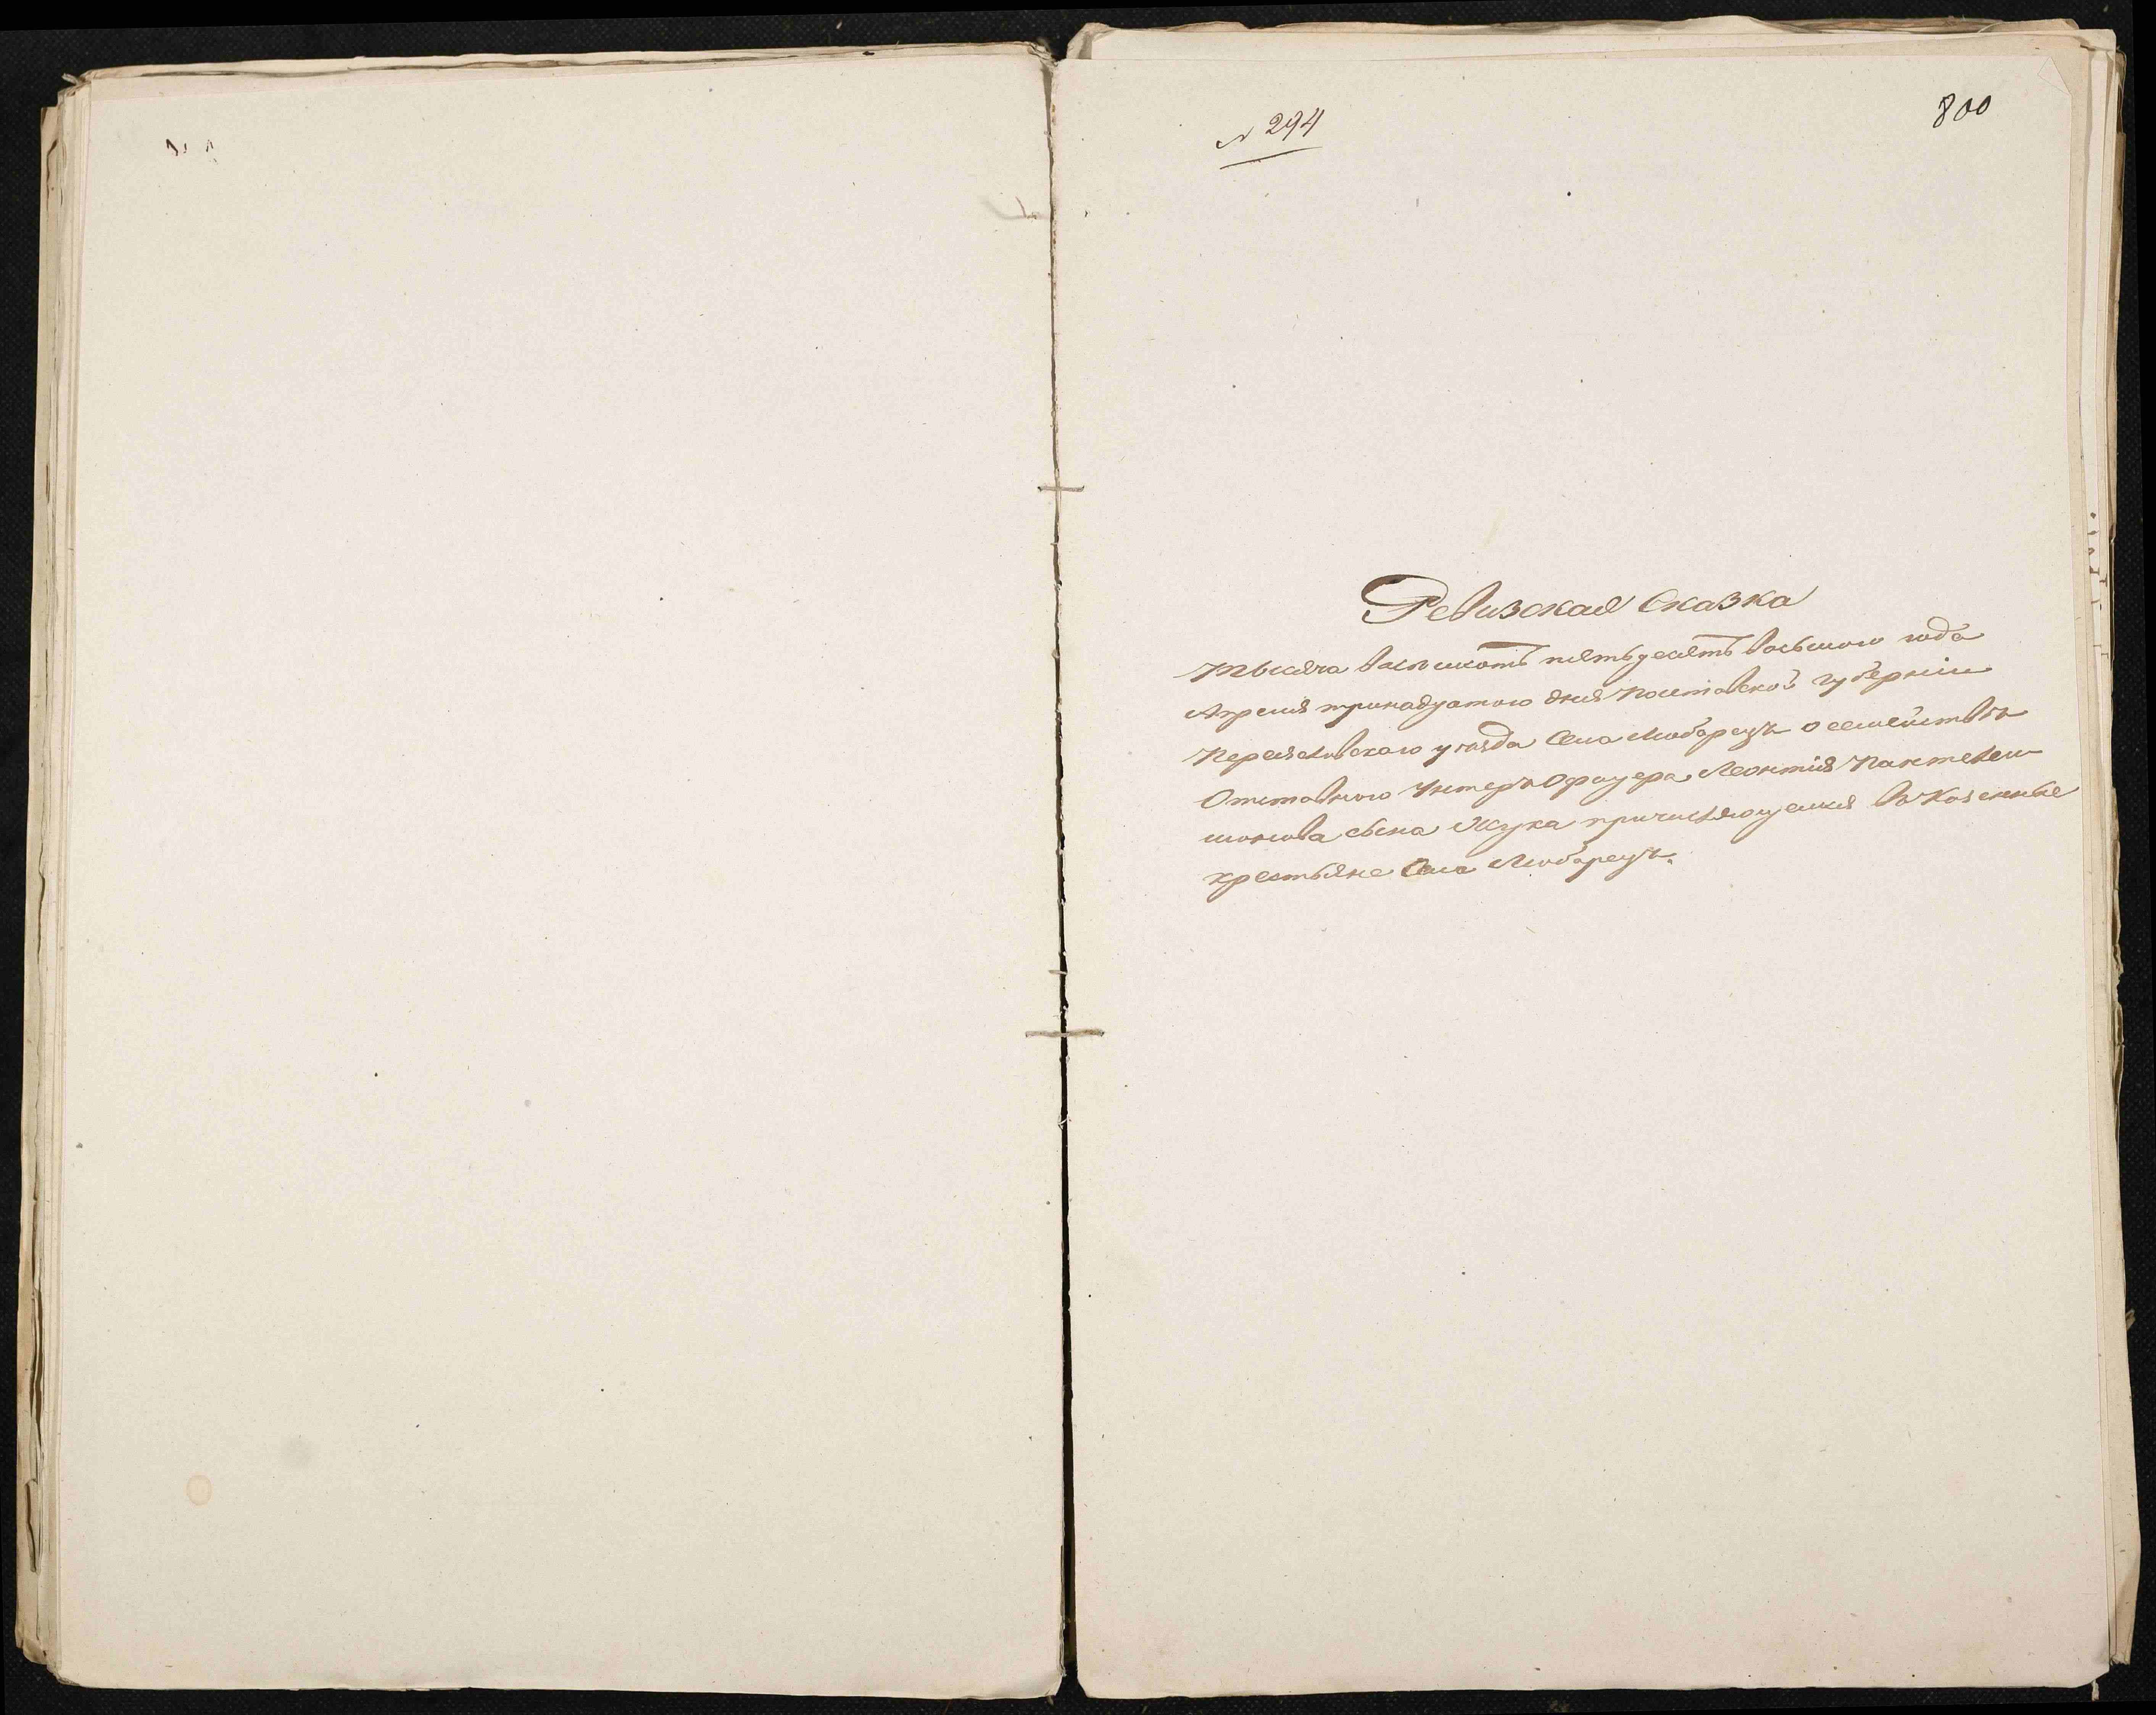 № 294
800
Ревизская Сказка
Тысяча восѣмсотъ пятьдесятъ восьмого года
Апреля тринадцатого дня Полтавской губерніи
Переяславского уѣзда Села Любарецъ о семействѣ
Отставного Унтеръ Офицера Леонтія Пантелеи
монова сына Жука причисляющемся въ Казенные
крестьяне Села Любарецъ.